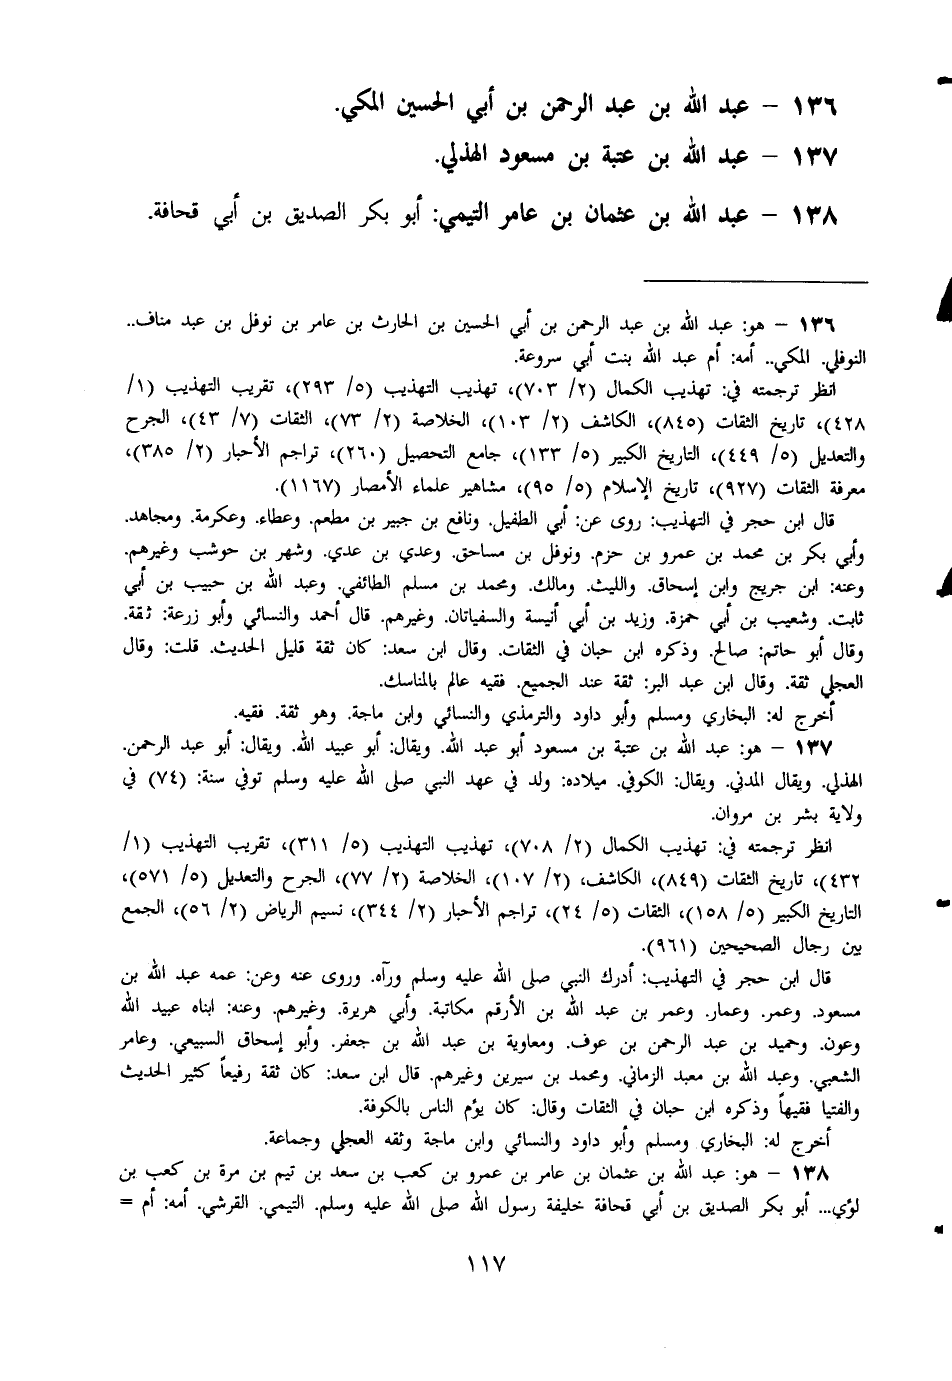 ١٣٦ - عبد الله بن عبد الرحمن بن أبي الحسين المكي.
١٣٧ - عبد الله بن عتبة بن مسعود الهذلي.
١٣٨ - عبد الله بن عثمان بن عامر التيمي: أبو بكر الصديق بن أبي قحافة.
١٣٦ - هو: عبد الله بن عبد الرحمن بن أبي الحسين بن الحارث بن عامر بن نوفل بن عبد مناف..
النوفلي. المكي.. أمه: أم عبد الله بنت أبي سروعة.
انظر ترجمته في: تهذيب الكمال (٢/ ٧٠٣)، تهذيب التهذيب (٥/ ٢٩٣)، تقريب التهذيب (١/
٤٢٨)، تاريخ الثقات (٨٤٥)، الكاشف (٢/ ١٠٣)، الخلاصة (٢/ ٧٣)، الثقات (٧/ ٤٣)، الجرح
والتعديل (٥/ ٤٤٩)، التاريخ الكبير (٥/ ١٣٣)، جامع التحصيل (٢٦٠)، تراجم الأحبار (٢/ ٣٨٥)،
معرفة الثقات (٩٢٧)، تاريخ الإسلام (٥/ ٩٥)، مشاهير علماء الأمصار (١١٦٧).
قال ابن حجر في التهذيب: روى عن: أبي الطفيل. ونافع بن جبير بن مطعم. وعطاء. وعكرمة. ومجاهد.
وأبي بكر بن محمد بن عمرو بن حزم. ونوفل بن مساحق. وعدي بن عدي. وشهر بن حوشب وغيرهم.
وعنه: ابن جريج وابن إسحاق. والليث. ومالك. ومحمد بن مسلم الطائفي. وعبد الله بن حبيب بن أبي
ثابت. وشعيب بن أبي حمزة. وزيد بن أبي أنيسة والسفياتان. وغيرهم. قال أحمد والنسائي وأبو زرعة: ثقة.
وقال أبو حاتم: صالح. وذكره ابن حبان في الثقات. وقال ابن سعد: كان ثقة قليل الحديث. قلت: وقال
العجلي ثقة. وقال ابن عبد البر: ثقة عند الجميع. فقيه عالم بالمناسك.
أخرج له: البخاري ومسلم وأبو داود والترمذي والنسائي وابن ماجة. وهو ثقة. فقيه.
١٣٧ - هو: عبد الله بن عتبة بن مسعود أبو عبد الله. ويقال: أبو عبيد الله. ويقال: أبو عبد الرحمن.
الهذلي. ويقال المدني. ويقال: الكوفي. ميلاده: ولد في عهد النبي صلى الله عليه وسلم توفي سنة: (٧٤) في
ولاية بشر بن مروان.
انظر ترجمته في: تهذيب الكمال (٢/ ٧٠٨)، تهذيب التهذيب (٥/ ٣١١)، تقريب التهذيب (١/
٤٣٢)، تاريخ الثقات (٨٤٩)، الكاشف، (٢/ ١٠٧)، الخلاصة (٢/ ٧٧)، الجرح والتعديل (٥/ ٥٧١)،
التاريخ الكبير (٥/ ١٥٨)، الثقات (٥/ ٢٤)، تراجم الأحبار (٢/ ٣٤٤)، نسيم الرياض (٢/ ٥٦)، الجمع
بين رجال الصحيحين (٩٦١).
قال ابن حجر في التهذيب: أدرك النبي صلى الله عليه وسلم ورآه. وروى عنه وعن: عمه عبد الله بن
مسعود. وعمر. وعمار. وعمر بن عبد الله بن الأرقم مكاتبة. وأبي هريرة. وغيرهم. وعنه: ابناه عبيد الله
وعون. وحميد بن عبد الرحمن بن عوف. ومعاوية بن عبد الله بن جعفر. وأبو إسحاق السبيعي. وعامر
الشعبي. وعبد الله بن معبد الزماني. ومحمد بن سيرين وغيرهم. قال ابن سعد: كان ثقة رفيعاً كثير الحديث
والفتيا فقيهاً وذكره ابن حبان في الثقات وقال: كان يؤم الناس بالكوفة.
أخرج له: البخاري ومسلم وأبو داود والنسائي وابن ماجة وثقه العجلي وجماعة.
١٣٨ - هو: عبد الله بن عثمان بن عامر بن عمرو بن كعب بن سعد بن تيم بن مرة بن كعب بن
لؤي... أبو بكر الصديق بن أبي قحافة خليفة رسول الله صلى الله عليه وسلم. التيمي. القرشي. أمه: أم =
١١٧